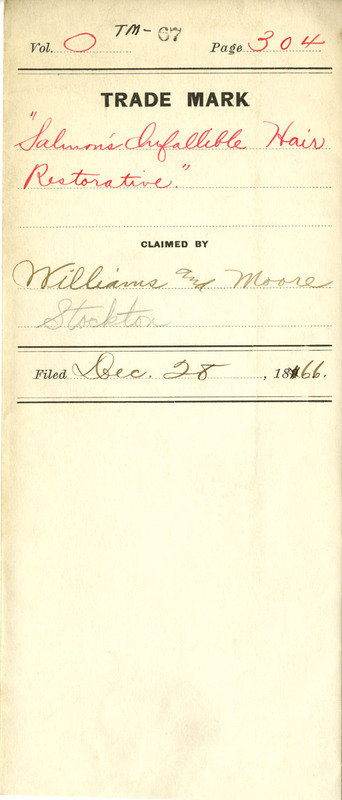 TM-67
Vol. O Page 304
TRADE MARK
"Salmon's Infallible Hair
Restorative."
CLAIMED BY
Williams and Moore
Stockton
Filed Dec. 28, 1866.